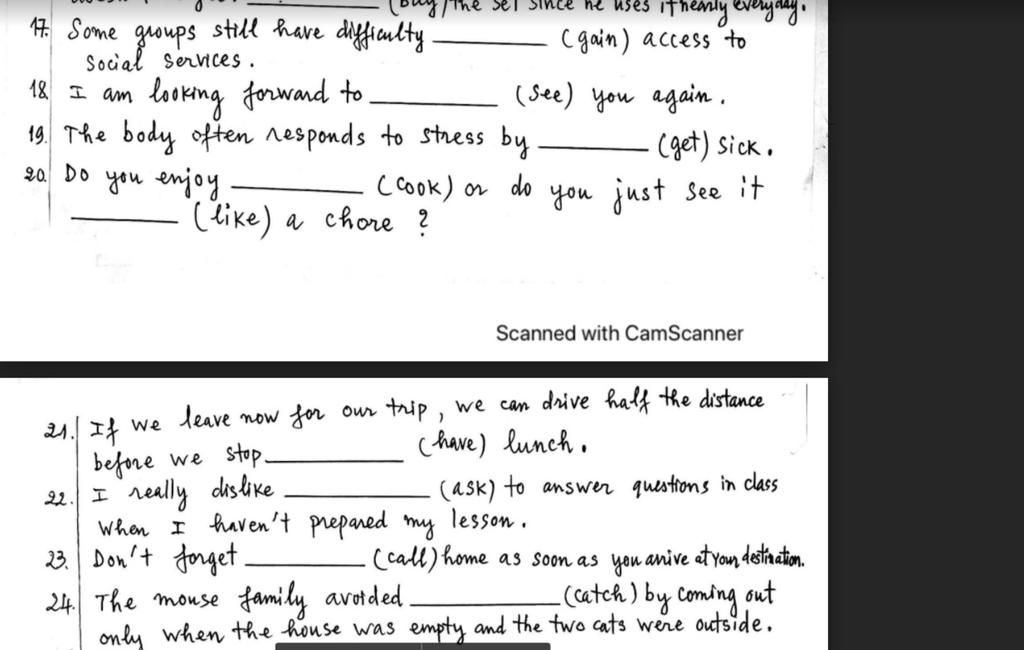 (buy) the set since he uses it nearly everyday.
17. Some groups still have difficulty __________ (gain) access to
social services.
18. I am looking forward to __________ (see) you again.
19. The body often responds to stress by __________ (get) sick.
20. Do you enjoy __________ (cook) or do you just see it
__________ (like) a chore ?
Scanned with CamScanner
21. If we leave now for our trip, we can drive half the distance
before we stop __________ (have) lunch.
22. I really dislike __________ (ask) to answer questions in class
when I haven't prepared my lesson.
23. Don't forget __________ (call) home as soon as you arrive at your destination.
24. The mouse family avoided __________ (catch) by coming out
only when the house was empty and the two cats were outside.